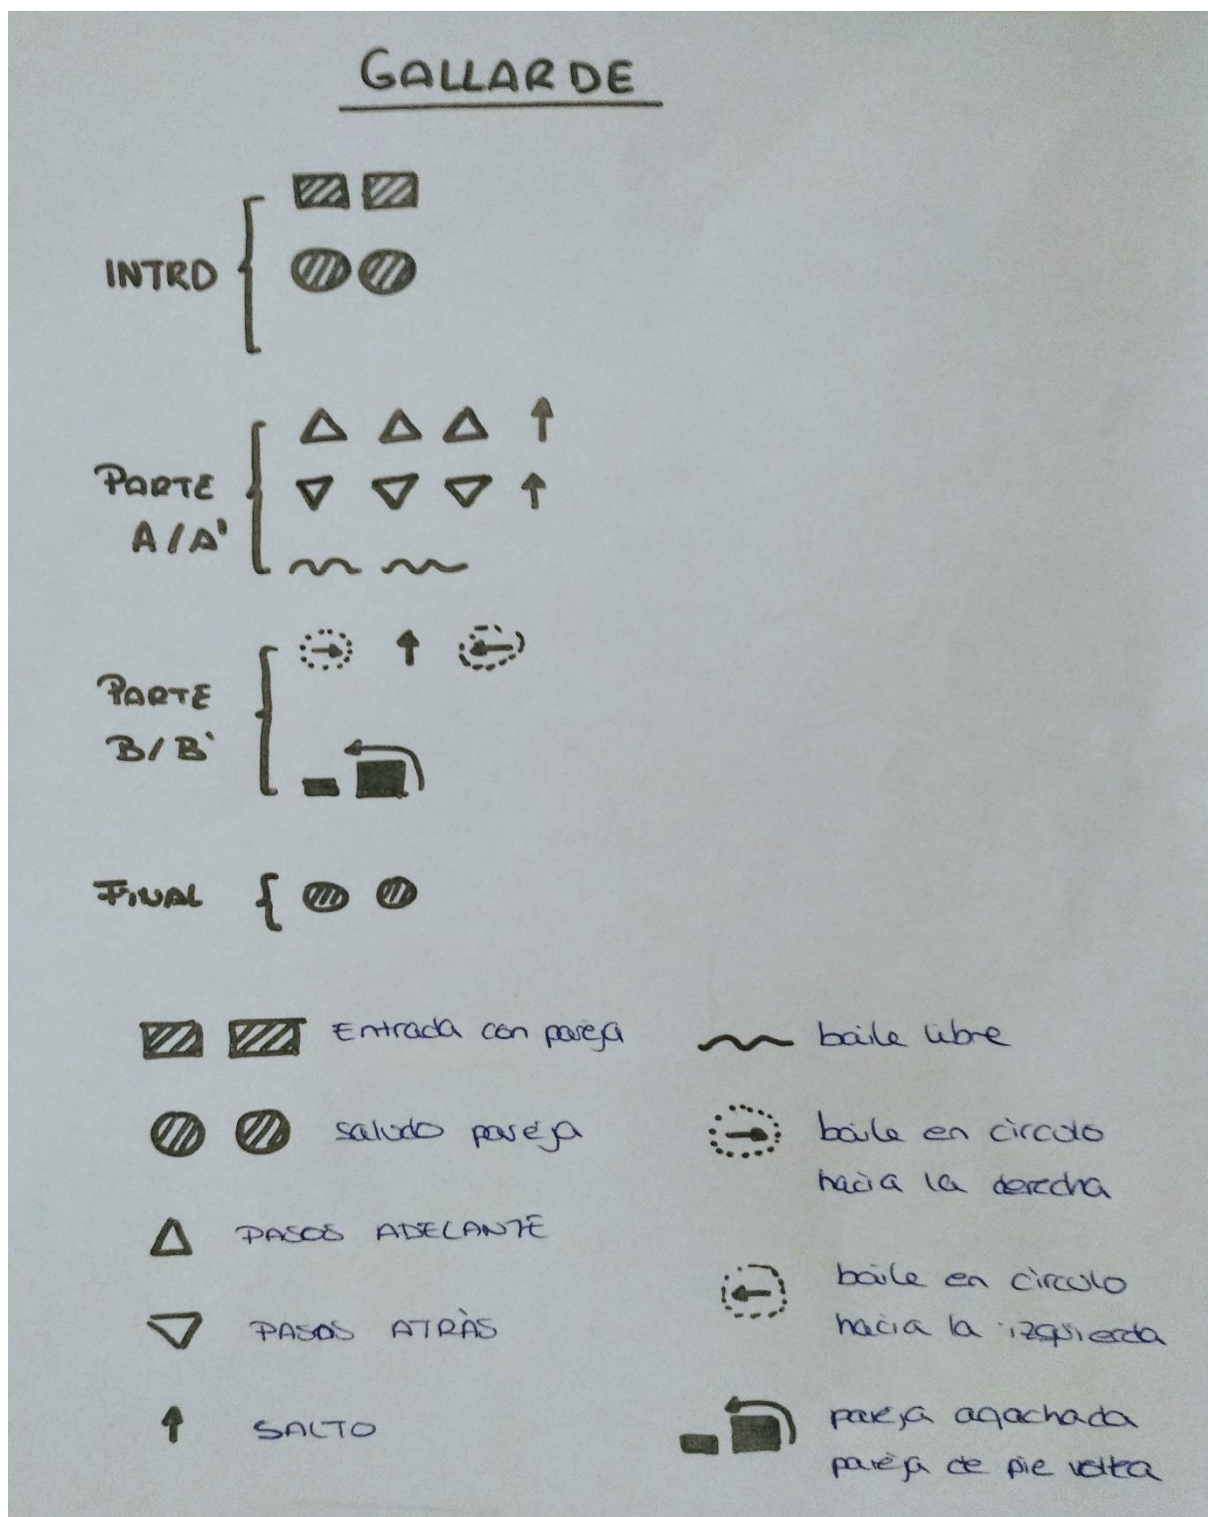 GALLARDE
INTRO
PARTE
A/A'
PARTE
B/B'
FINAL
Entrada con pareja
saludo pareja
PASOS ADELANTE
PASOS ATRÀS
SALTO
baile libre
baile en circulo
hacia la derecha
baile en circulo
hacia la izquierda
pareja agachada
pareja de pie voltea